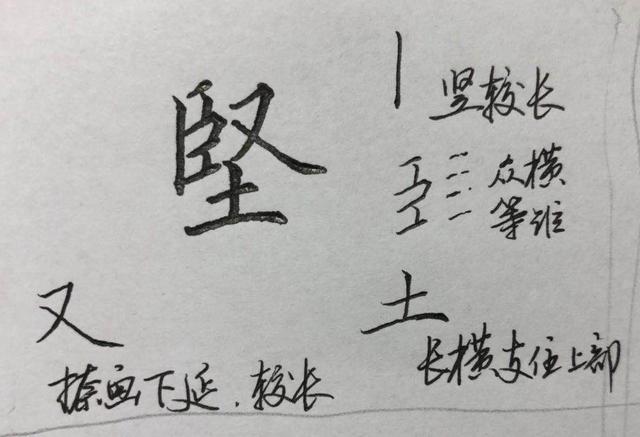 堅
丨 竖较长
众横
等距
又
捺画下延.较长
土
长横支住上部